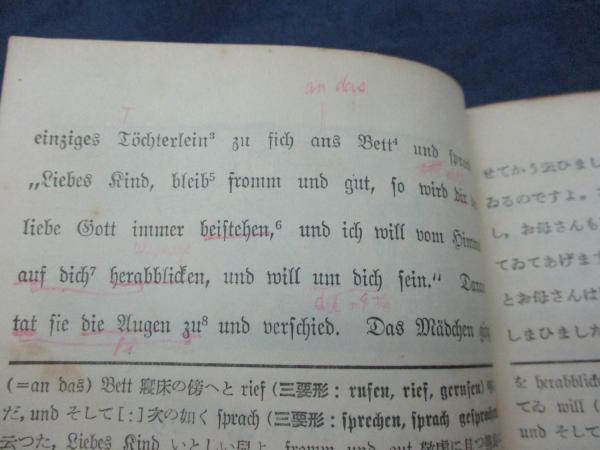 an das
einziges Töchterlein³ zu sich ans Bett⁴ und sprach
„Liebes Kind, bleib⁵ fromm und gut, so wird dir
liebe Gott immer beistehen,⁶ und ich will vom
auf dich⁷ herabblicken, und will um dich sein.“
tat sie die Augen zu⁸ und verschied. Das Mädchen
(=an das) Bett 寢床の傍へと rief (三要形: rufen, rief, gerufen)
だ, und そして [:] 次の如く sprach (三要形: sprechen, sprach gesprochen
云つた, Liebes Kind いとしい fromm und gut
せてかう云ひまし
ゐるのですよ。
し、お母さんも
てゐてあげます
とお母さんは
しまひました
を herabblicken
てゐ will (
und そして